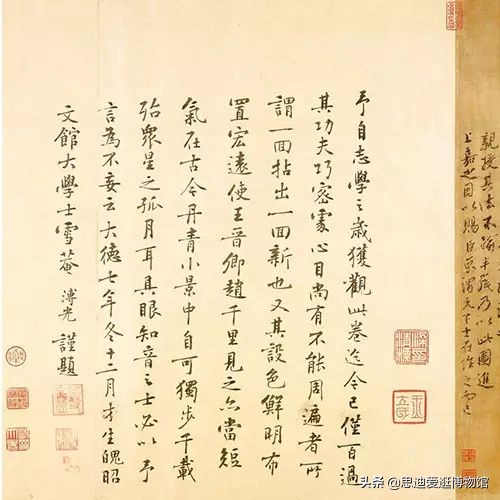 親授其法不踰半歲乃以此圖進
上嘉之因以賜臣京謂天下士在作之而已
予自志學之歲獲觀此卷迄今已僅百過
其功夫巧密處心目尚有不能周遍者所
謂一囬拈出一囬新也又其設色鮮明布
置宏遠使王晉卿趙千里見之亦當短
氣在古今丹青小景中自可獨步千載
殆眾星之孤月耳具眼知音之士必以予
言為不妄云大德七年冬十二月才生魄昭
文館大學士雪菴溥光謹題
头条 @思迪爱逛博物馆